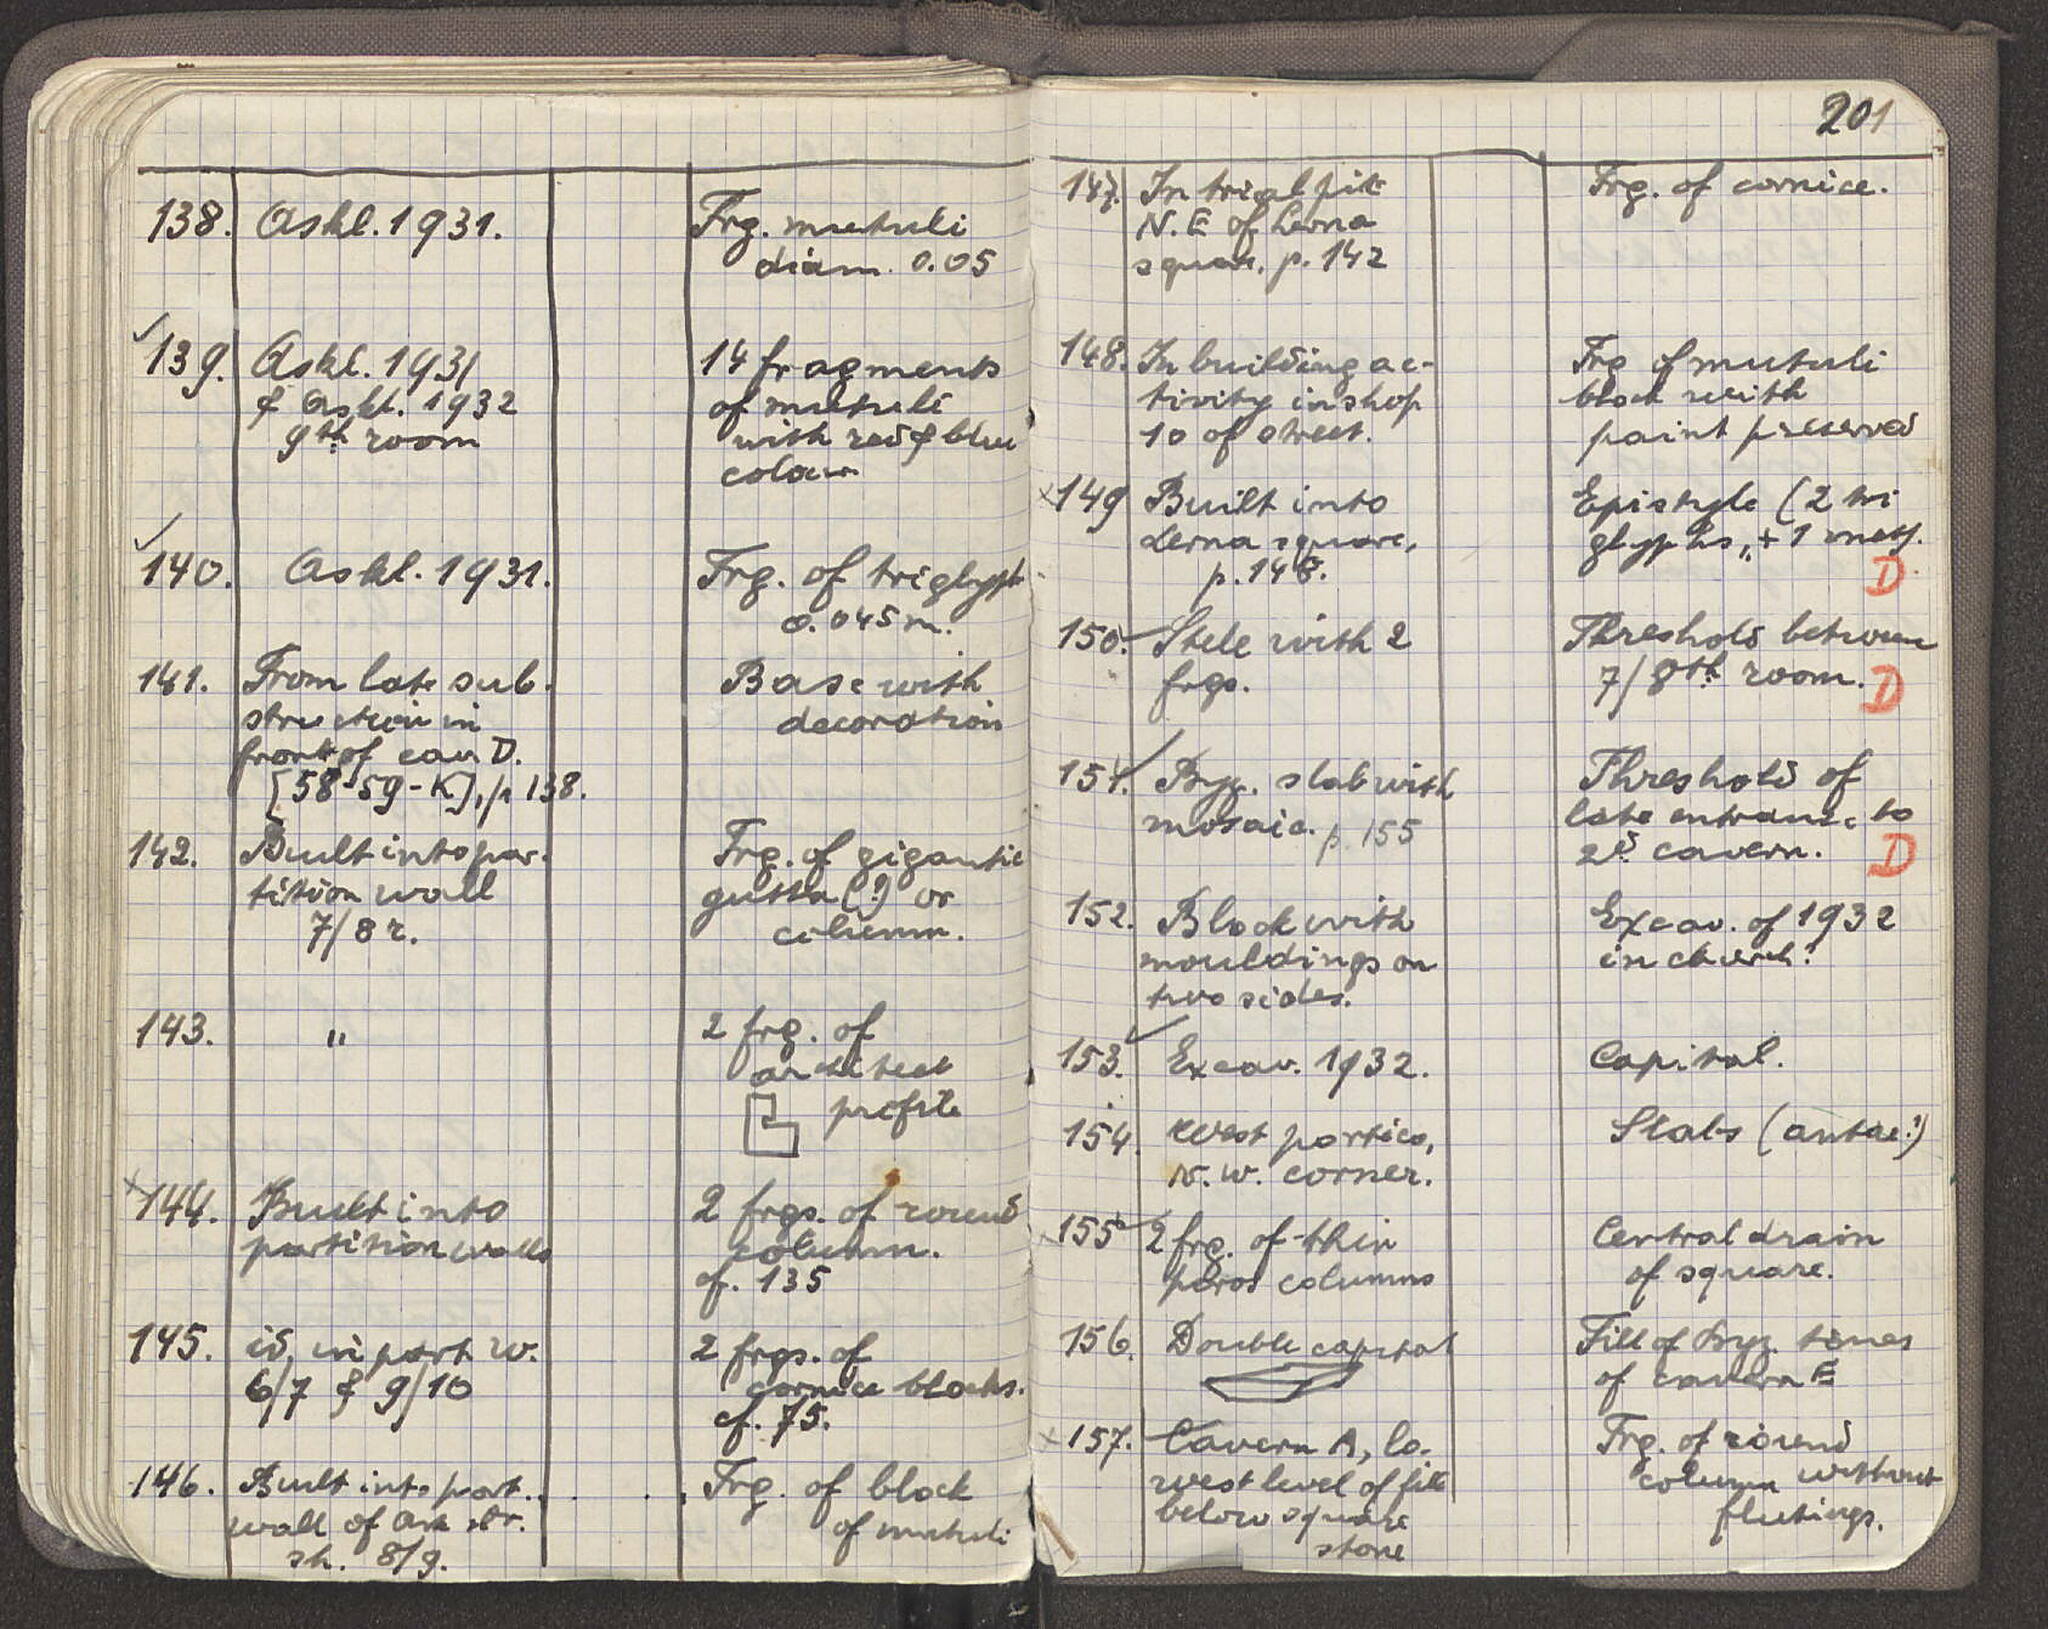 138. Askl. 1931. Frg. mutuli
diam. 0.05
139. Askl. 1931 14 fragments
& Askl. 1932 of mutuli
9th room with red & blue
colour
140. Askl. 1931. Frg. of triglyph
0.045 m.
141. From late sub- Base with
struction in decoration
front of cav D.
[58-59-K], p 138.
142. Built into par- Frg. of gigantic
tition wall gutta (?) or
7/8 r. column.
143. " 2 frg. of
architect
profile
144. Built into 2 frgs. of round
partition walls column.
cf. 135
145. id. in part w. 2 frgs. of
6/7 & 9/10 cornice blocks.
cf. 75.
146. Built into part. Frg. of block
wall of Ask str. of mutuli
sh. 8/9.
201
147. In trial pit Frg. of cornice.
N.E of Lerna
square, p. 142
148. In building ac- Frg of mutuli
tivity in shop block with
10 of street. paint preserved
149 Built into Epistyle (2 tri
Lerna square, glyphs, + 1 met).
p. 146. D
150. Stele with 2 Threshold between
frgs. 7/8th room. D
151. Byz. slab with Threshold of
mosaic. p. 155 late entrance to
2d cavern. D
152. Block with Excav. of 1932
mouldings on in church?
two sides.
153. Excav. 1932. Capital.
154. West portico, Slabs (antae?)
N.W. corner.
155 2 frg. of thin Central drain
poros columns of square.
156. Double capital Fill of Byz. times
of cavern E
157. Cavern A, lo- Frg. of round
west level of fill column without
below square flutings.
stone